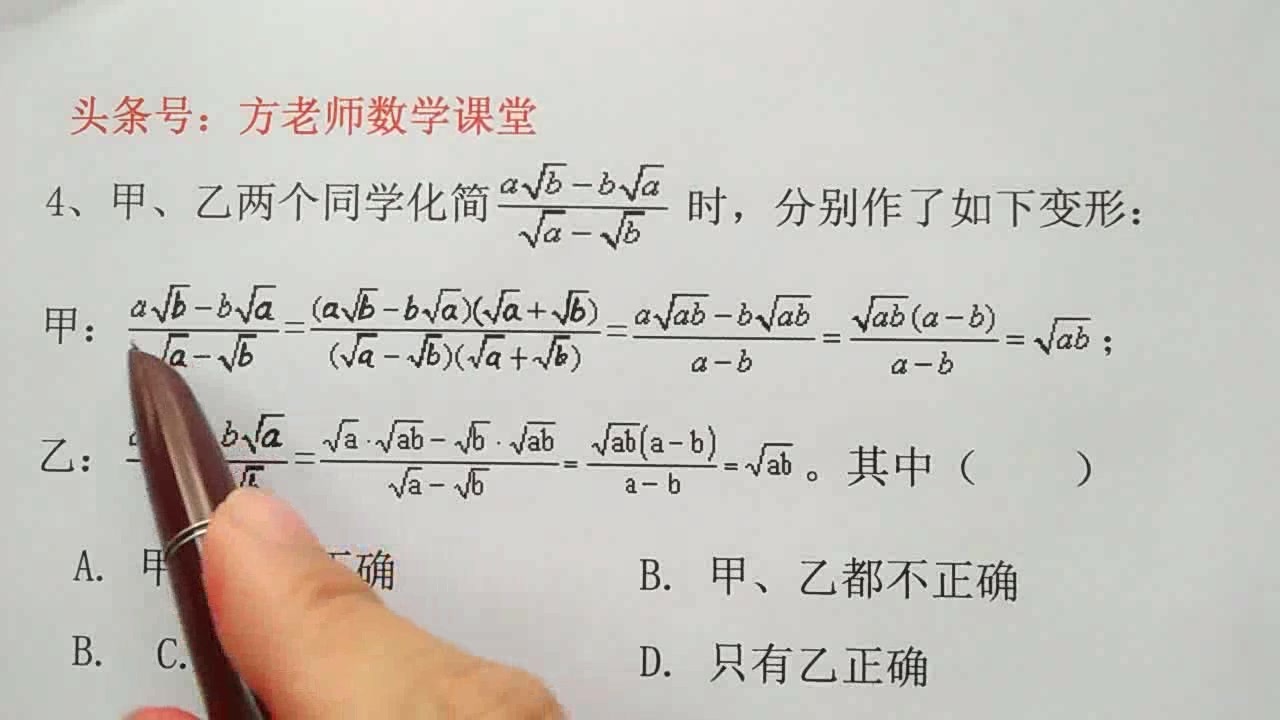 头条号：方老师数学课堂
4、甲、乙两个同学化简 \frac{a\sqrt{b}-b\sqrt{a}}{\sqrt{a}-\sqrt{b}} 时，分别作了如下变形：
甲：\frac{a\sqrt{b}-b\sqrt{a}}{\sqrt{a}-\sqrt{b}}=\frac{(a\sqrt{b}-b\sqrt{a})(\sqrt{a}+\sqrt{b})}{(\sqrt{a}-\sqrt{b})(\sqrt{a}+\sqrt{b})}=\frac{a\sqrt{ab}-b\sqrt{ab}}{a-b}=\frac{\sqrt{ab}(a-b)}{a-b}=\sqrt{ab}；
乙：b\sqrt{a} \sqrt{b}=\frac{\sqrt{a}·\sqrt{ab}-\sqrt{b}·\sqrt{ab}}{\sqrt{a}-\sqrt{b}}=\frac{\sqrt{ab}(a-b)}{a-b}=\sqrt{ab}。其中（ ）
A. 甲 正确 B. 甲、乙都不正确
B. C. D. 只有乙正确